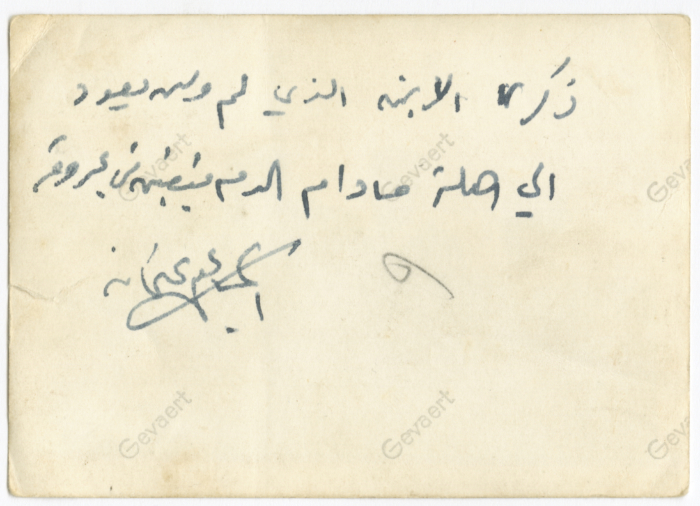 ذكرى الابن الذي لم ولن يعود
الي اهلة مادام الدم ينبض في عروقه
Gevaert
Gevaert
Gevaert
Gevaert
Gevaert
Gevaert